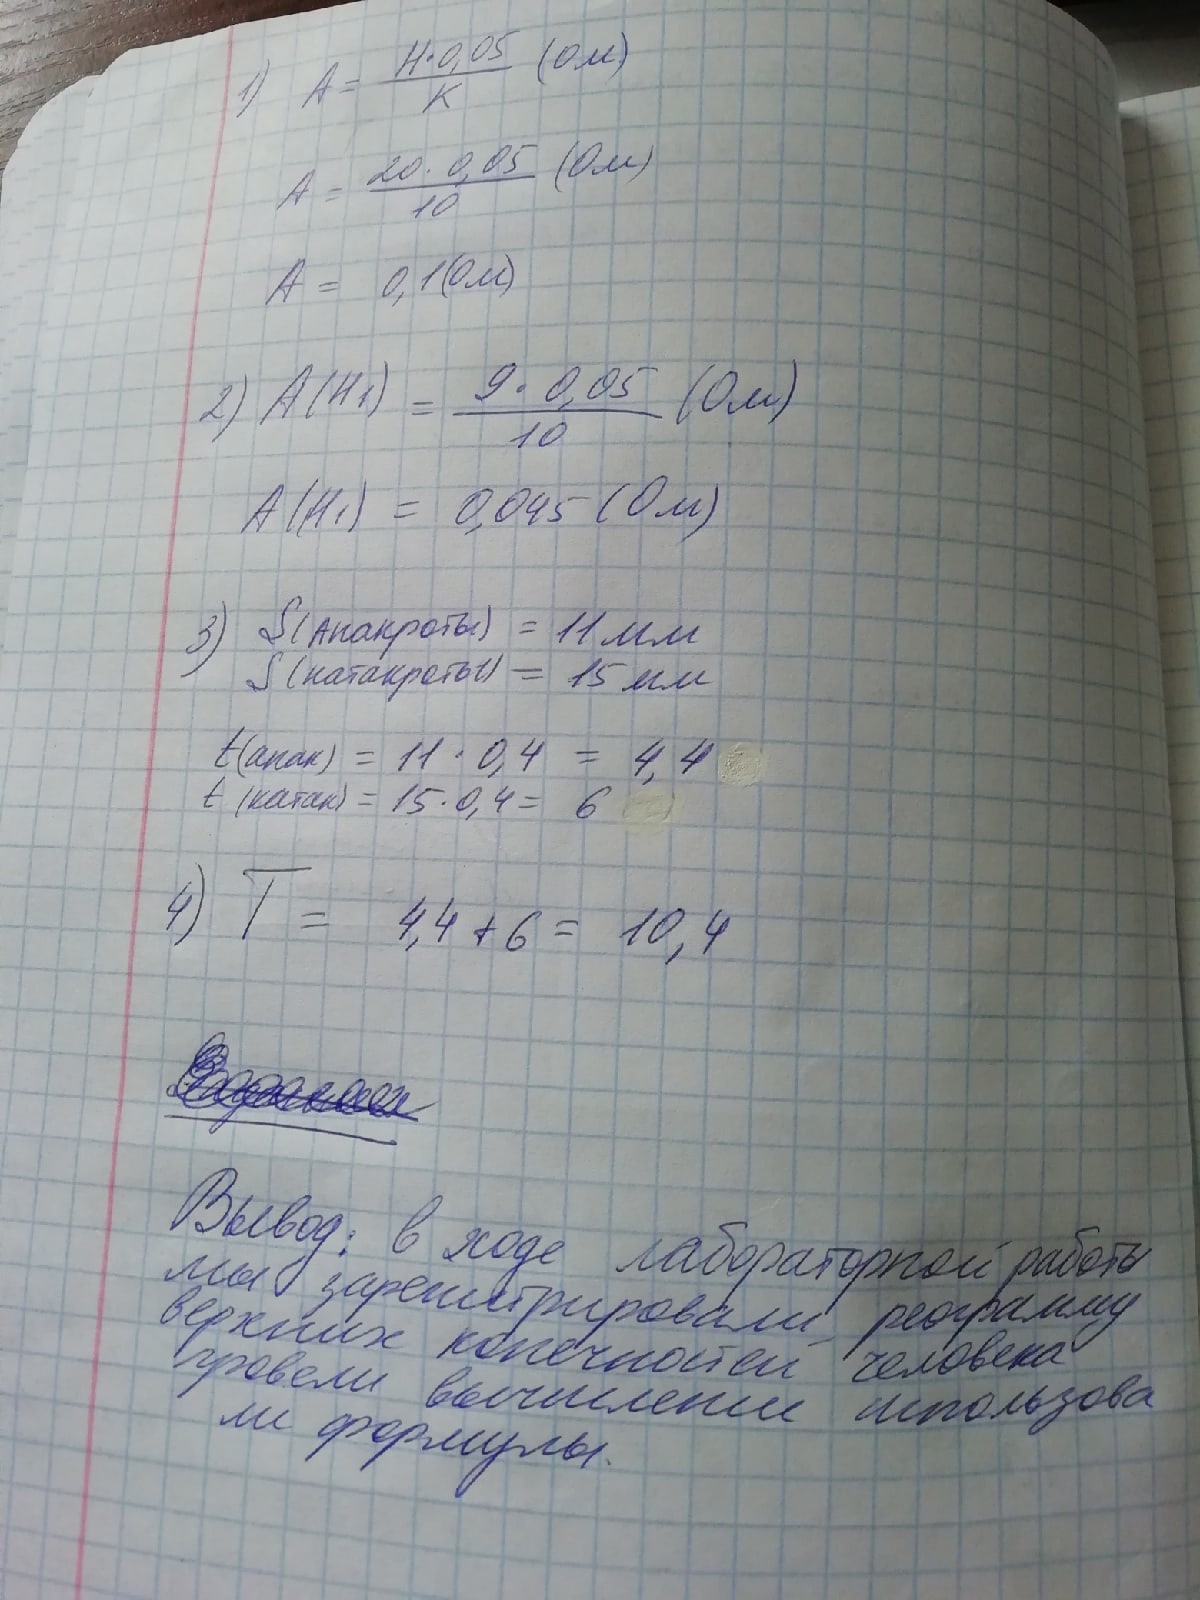 1) A = H·0,05 / K (Ом)
A = 20·0,05 / 10 (Ом)
A = 0,1 (Ом)
2) A(H₁) = 9·0,05 / 10 (Ом)
A(H₁) = 0,045 (Ом)
3) S(анакроты) = 11 мм
S(катакроты) = 15 мм
t(анак) = 11·0,4 = 4,4
t(катак) = 15·0,4 = 6
4) T = 4,4 + 6 = 10,4
Вывод: в ходе лабораторной работы
мы зарегистрировали реограмму
верхних конечностей человека
провели вычисление использова
ли формулы.